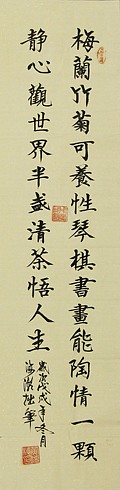 梅蘭竹菊可養性琴棋書畫能陶情一顆
靜心觀世界半盞清茶悟人生
歲次戊戌年冬月